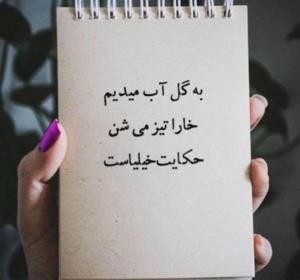 به گل آب میدیم
خارا تیز می شن
حکایت‌خیلیاست